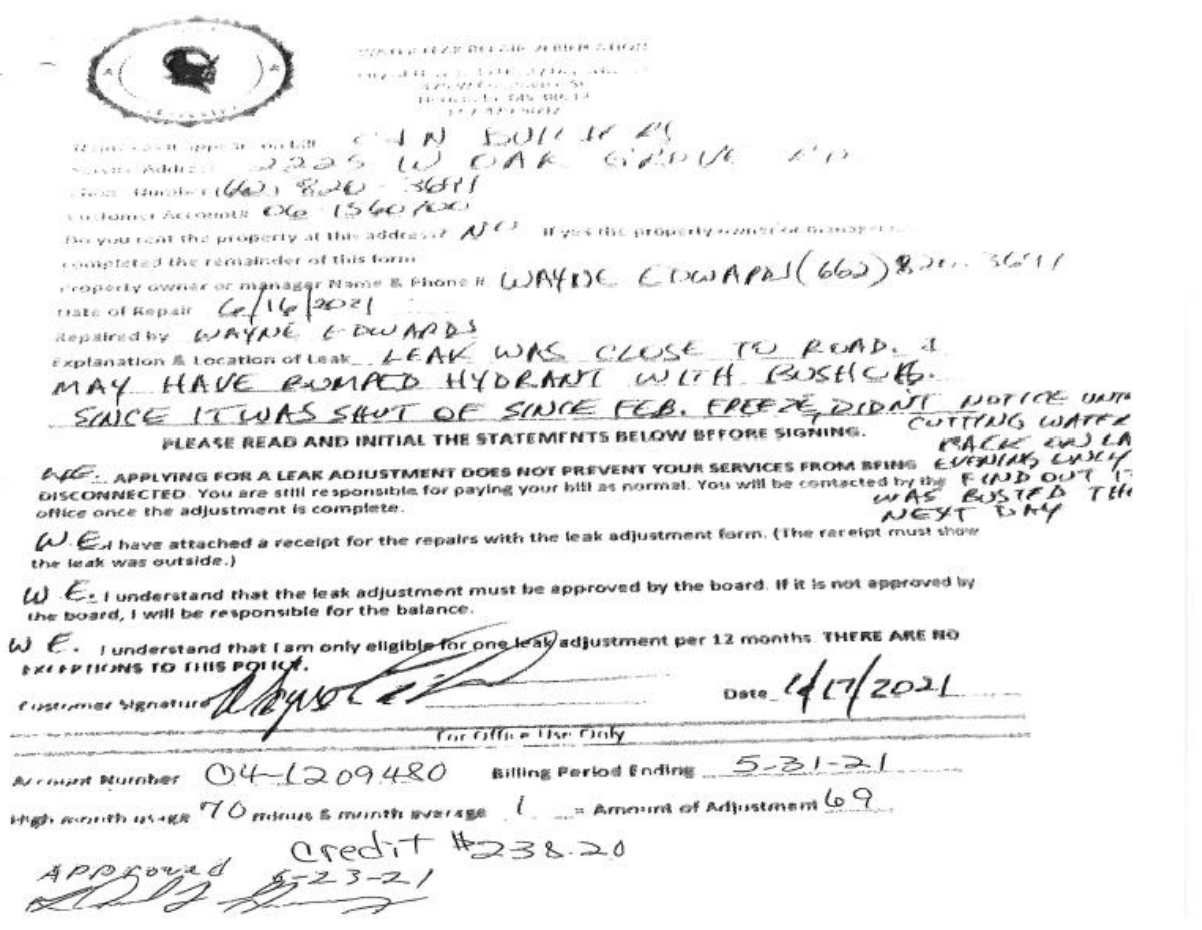 WATER LEAK REPAIR VERIFICATION
BUILDERS
Service Address 2225 W OAK GROVE RD
Phone Number (662) 820-3691
Customer Account# 06 1560700
Do you rent the property at this address? NO If yes the property owner or manager
completed the remainder of this form
Property owner or manager Name & Phone # WAYNE EDWARDS (662) 820-3691
Date of Repair 6/16/2021
Repaired by WAYNE EDWARDS
Explanation & Location of Leak LEAK WAS CLOSE TO ROAD. I
MAY HAVE BUMPED HYDRANT WITH BUSHHOG.
SINCE IT WAS SHUT OF SINCE FEB. FREEZE, DIDNT NOTICE UNTI
CUTTING WATER
BACK ON LA
EVENING ONLY
FIND OUT IT
WAS BUSTED THE
NEXT DAY
PLEASE READ AND INITIAL THE STATEMENTS BELOW BEFORE SIGNING.
WE. APPLYING FOR A LEAK ADJUSTMENT DOES NOT PREVENT YOUR SERVICES FROM BEING
DISCONNECTED. You are still responsible for paying your bill as normal. You will be contacted by the
office once the adjustment is complete.
W.E. I have attached a receipt for the repairs with the leak adjustment form. (The receipt must show
the leak was outside.)
W.E. I understand that the leak adjustment must be approved by the board. If it is not approved by
the board, I will be responsible for the balance.
W E. I understand that I am only eligible for one leak adjustment per 12 months. THERE ARE NO
EXCEPTIONS TO THIS POLICY.
Customer Signature Date 6/17/2021
For Office Use Only
Account Number 04-1209480 Billing Period Ending 5-31-21
High month usage 70 minus 6 month average 1 = Amount of Adjustment 69
Credit $238.20
APPROVED 6-23-21